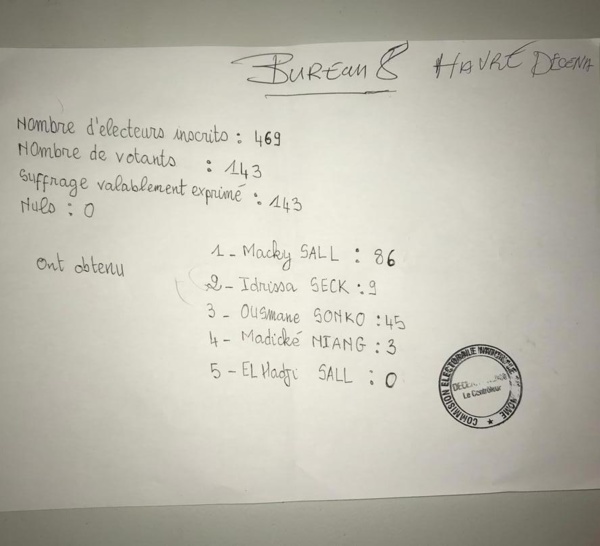 BUREAU 8 HAVRE
Nombre d'electeurs inscrits : 469
NOmbre de votants : 143
Suffrage valablement exprimé : 143
Nuls : 0
Ont obtenu
1 - Macky SALL : 86
2 - Idrissa SECK : 9
3 - OUSmane SONKO : 45
4 - Madické NIANG : 3
5 - EL Hadji SALL : 0
COMMISION ELECTORALE
Le Contrôleur